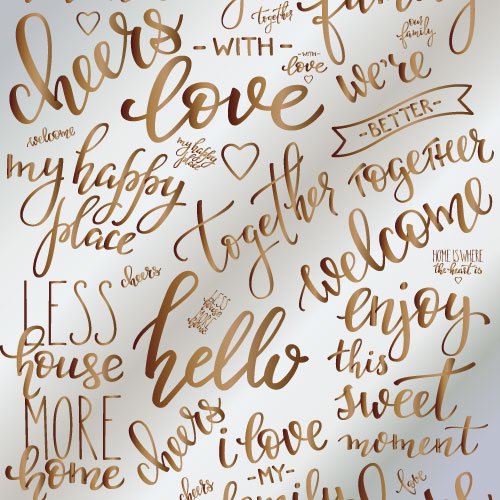 cheers
together
-WITH-
love
-WITH-
love
family
our
family
we're
-BETTER-
TOGETHER
welcome
my happy
place
my happy
place
together
welcome
HOME IS WHERE
the heart is
cheers
LESS
house
MORE
home
LESS
house
MORE
home
hello
enjoy
this
sweet
moment
cheers
cheers
i love
-MY-
family
love